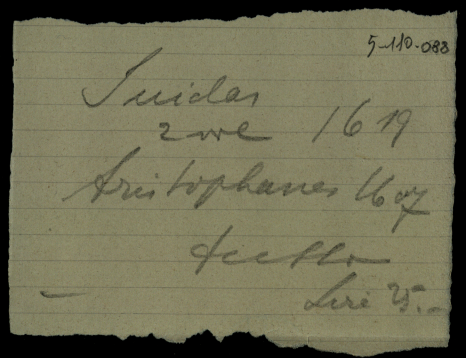 5-110-088
Suidas
2 vol 1619
Aristophanes 1607
Lire 25.-